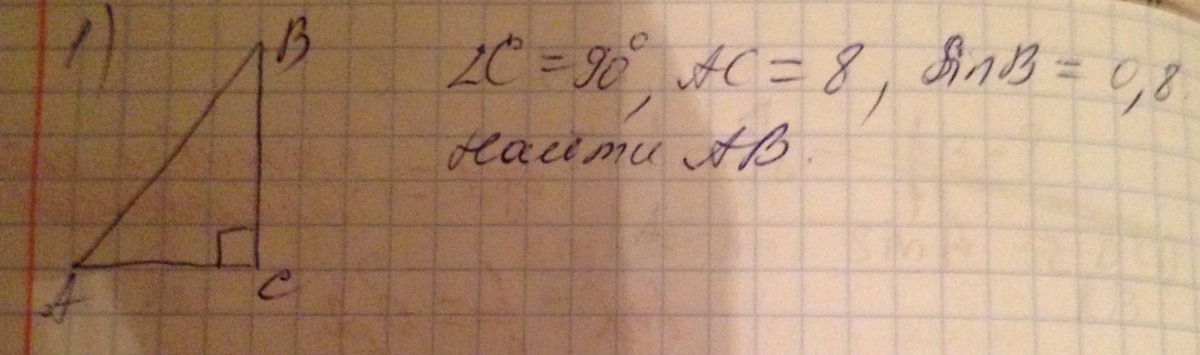 1)
B
∠C = 90°, AC = 8, SinB = 0,8.
Найти AB.
A
C